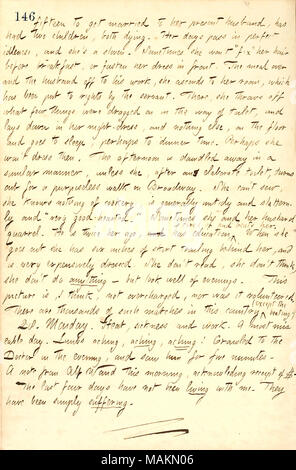 146
fifteen to get married to her present husband, has
had two children, both dying. Her days pass in perfect
idleness, and she's a sloven. Sometimes she won't "fix" her hair
before breakfast, or fasten her dress in front. The meal over
and the husband off to his work, she ascends to her room, which
has been put to rights by the servant. There, she throws off
what few things were dragged on in the way of toilet, and
lays down in her night-dress, and nothing else, on the floor
and goes to sleep, perhaps to dinner time. Perhaps she
won't dress then. The afternoon is dawdled away in a
similar manner, unless she, after an elaborate toilet, turns
out for a purposeless walk in Broadway. She can't sew,
she knows nothing of cookery, is generally untidy and slatternly
and very good-natured. Sometimes she and her husband
quarrel. He is twice her age, and has to her. When she
goes out she has six inches of skirt trailing behind her, and
is very expensively dressed. She don't read, she don't think,
she don't do anything — but look well of evenings. This
picture is, I think, not overcharged, nor was it volunteered
There are thousands of such matches in this country.
28. Monday. Heat, sickness and work. A most miserable
day. Limbs aching, aching, aching! Crawled to the
Doctor in the evening, and saw him for five minutes.
A note from Alf this morning, acknowledging receipt of
The last four days have not been living with me. They
have been simply suffering.
alamy
Image ID: MAKN06
www.alamy.com